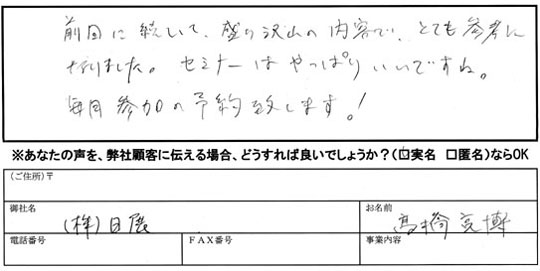 前回に続いて、盛り沢山の内容で、とても参考に
なりました。セミナーはやっぱりいいですね。
毎回参加の予約致します!
※あなたの声を、弊社顧客に伝える場合、どうすれば良いでしょうか?(□実名 □匿名)ならOK
(ご住所)〒
御社名 お名前
(株)日展 高橋 宣博
電話番号 FAX番号 事業内容